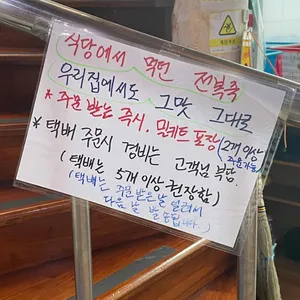 식당에서 먹던 전복죽
우리집에서도 그맛 그대로
* 주문 받는 즉시, 밀키트 포장 (2개 이상
주문가능)
* 택배 주문시 경비는 고객님 부담.
(택배는 5개 이상 권장함)
(택배는 주문받은날 얼려서
다음날 발송합니다.)